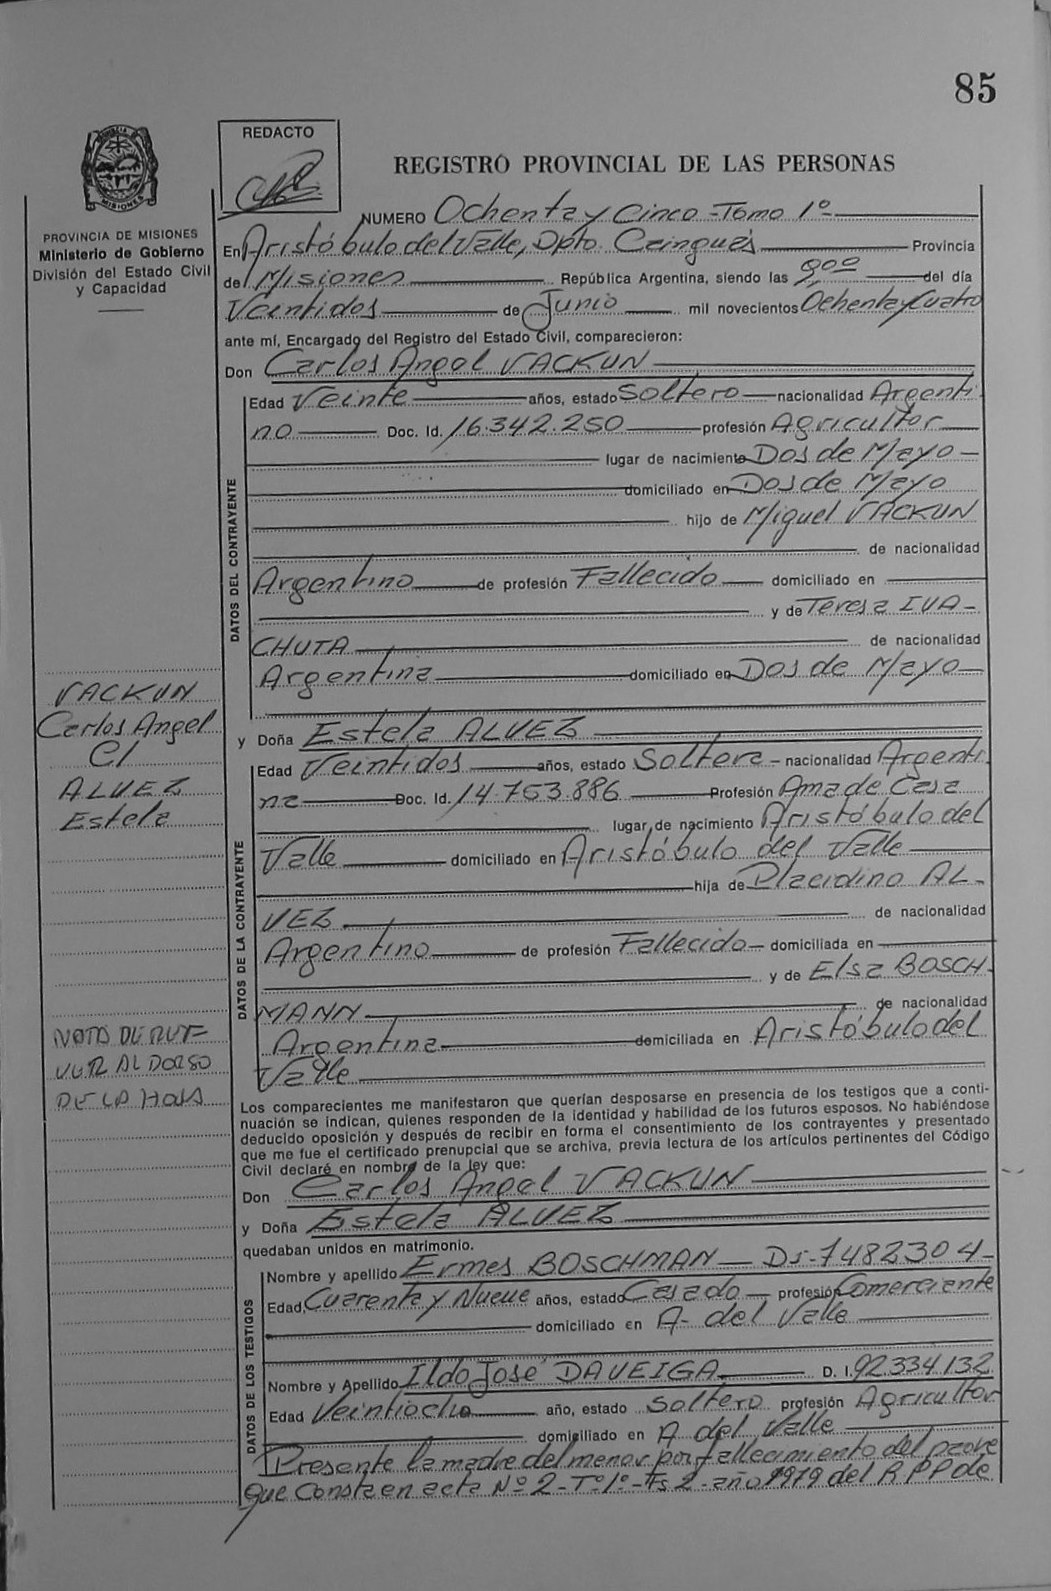 85
REDACTO
REGISTRO PROVINCIAL DE LAS PERSONAS
PROVINCIA DE MISIONES
Ministerio de Gobierno
División del Estado Civil
y Capacidad
NUMERO Ochenta y Cinco - Tomo 1º
En Aristóbulo del Valle, Dpto. Cainguás Provincia
de Misiones República Argentina, siendo las 9,00 del día
Veintidos de Junio mil novecientos Ochenta y Cuatro
ante mí, Encargado del Registro del Estado Civil, comparecieron:
Don Carlos Angel VACKUN
DATOS DEL CONTRAYENTE
Edad Veinte años, estado Soltero nacionalidad Argenti
no Doc. Id. 16.342.250 profesión Agricultor
lugar de nacimiento Dos de Mayo
domiciliado en Dos de Mayo
hijo de Miguel VACKUN
de nacionalidad
Argentino de profesión Fallecido domiciliado en
y de Teresa IVA-
CHUTA de nacionalidad
Argentina domiciliado en Dos de Mayo
VACKUN
Carlos Angel
C/
ALVEZ
Estela
y Doña Estela ALVEZ
DATOS DE LA CONTRAYENTE
Edad Veintidos años, estado Soltera - nacionalidad Argenti
na Doc. Id. 14.753.886 Profesión Ama de Casa
lugar de nacimiento Aristóbulo del
Valle domiciliado en Aristóbulo del Valle
hija de Placidino AL-
VEZ de nacionalidad
Argentino de profesión Fallecido domiciliada en
y de Elsa BOSCH-
MANN de nacionalidad
Argentina domiciliada en Aristóbulo del
Valle
NOTA DE
VER AL DORSO
DE LA HOJA
Los comparecientes me manifestaron que querían desposarse en presencia de los testigos que a conti-
nuación se indican, quienes responden de la identidad y habilidad de los futuros esposos. No habiéndose
deducido oposición y después de recibir en forma el consentimiento de los contrayentes y presentado
que me fue el certificado prenupcial que se archiva, previa lectura de los artículos pertinentes del Código
Civil declaré en nombre de la ley que:
Don Carlos Angel VACKUN
y Doña Estela ALVEZ
quedaban unidos en matrimonio.
DATOS DE LOS TESTIGOS
Nombre y apellido Ermes BOSCHMAN - DI-7482304-
Edad Cuarenta y Nueve años, estado Casado profesión Comerciante
domiciliado en A- del Valle
Nombre y Apellido Ildo José DAVEIGA D. I. 92.334.132
Edad Veintiocho año, estado Soltero profesión Agricultor
domiciliado en A del Valle
Presente la madre del menor por fallecimiento del padre
que Consta en acta Nº 2 - Tº 1º - Fs 2 - año 1979 del R P P de